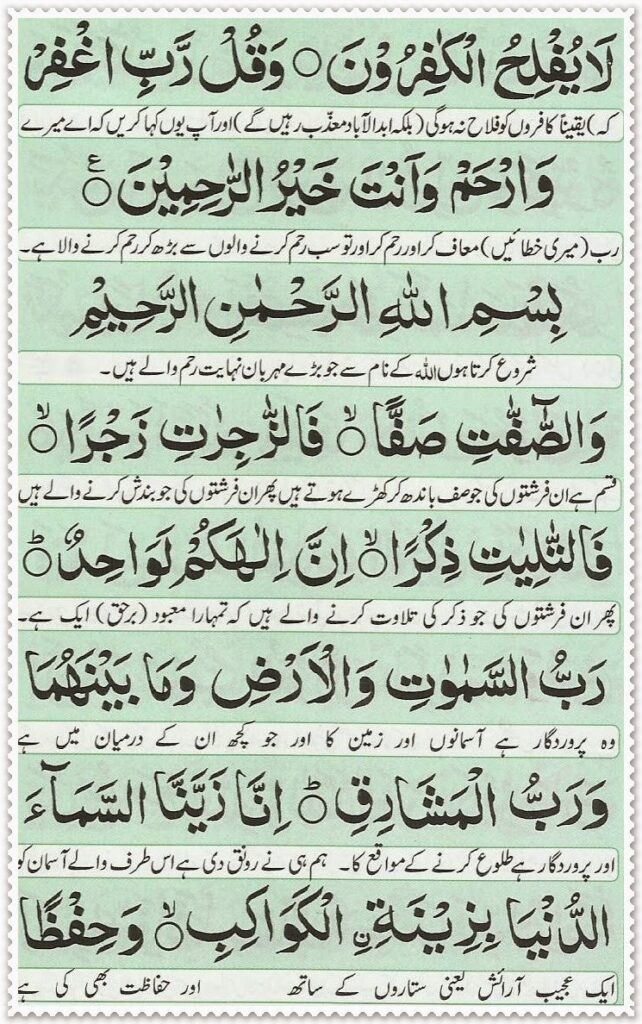 لَا يُفْلِحُ الْكٰفِرُوْنَ ○ وَقُلْ رَّبِّ اغْفِرْ
کہ) یقیناً کافروں کو فلاح نہ ہوگی (بلکہ ابدالآباد معذّب رہیں گے) اور آپ یوں کہا کریں کہ اے میرے
وَارْحَمْ وَاَنْتَ خَيْرُ الرّٰحِمِيْنَ ○ۧ
رب (میری خطائیں) معاف کر اور رحم کر اور تو سب رحم کرنے والوں سے بڑھ کر رحم کرنے والا ہے۔
بِسْمِ اللهِ الرَّحْمٰنِ الرَّحِيْمِ
شروع کرتا ہوں اللہ کے نام سے جو بڑے مہربان نہایت رحم والے ہیں۔
وَالصّٰٓفّٰتِ صَفًّا ○ۙ فَالزّٰجِرٰتِ زَجْرًا ○ۙ
قسم ہے ان فرشتوں کی جو صف باندھ کر کھڑے ہوتے ہیں پھر ان فرشتوں کی جو بندش کرنے والے ہیں
فَالتّٰلِيٰتِ ذِكْرًا ○ۙ اِنَّ اِلٰهَكُمْ لَوَاحِدٌ ○ؕ
پھر ان فرشتوں کی جو ذکر کی تلاوت کرنے والے ہیں کہ تمہارا معبود (برحق) ایک ہے۔
رَبُّ السَّمٰوٰتِ وَالْاَرْضِ وَمَا بَيْنَهُمَا
وہ پروردگار ہے آسمانوں اور زمین کا اور جو کچھ ان کے درمیان میں ہے
وَرَبُّ الْمَشَارِقِ ○ؕ اِنَّا زَيَّنَّا السَّمَآءَ
اور پروردگار ہے طلوع کرنے کے مواقع کا۔ ہم ہی نے رونق دی ہے اس طرف والے آسمان کو
الدُّنْيَا بِزِيْنَةِ ࣙالْكَوَاكِبِ ○ۙ وَحِفْظًا
ایک عجیب آرائش یعنی ستاروں کے ساتھ اور حفاظت بھی کی ہے